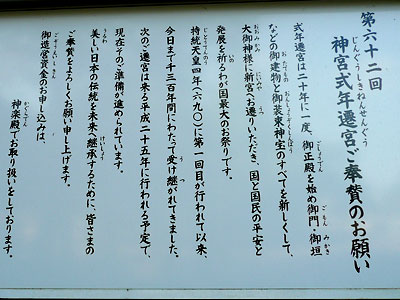 第六十二回
神宮式年遷宮ご奉賛のお願い
じんぐうしきねんせんぐう
式年遷宮は二十年に一度、御正殿を始め御門・御垣
などの御建物と御装束神宝のすべてを新しくして、
大御神様に新宮へお遷りいただき、国と国民の平安と
発展を祈るわが国最大のお祭りです。
持統天皇四年(六九〇)に第一回目が行われて以来、
今日まで千三百年間にわたって受け継がれてきました。
次のご遷宮は来る平成二十五年に行われる予定で、
現在そのご準備が進められています。
美しい日本の伝統を未来へ継承するために、皆さまの
ご奉賛をよろしくお願い申し上げます。
御造営資金のお申し込みは、
神楽殿でお取り扱いをしております。